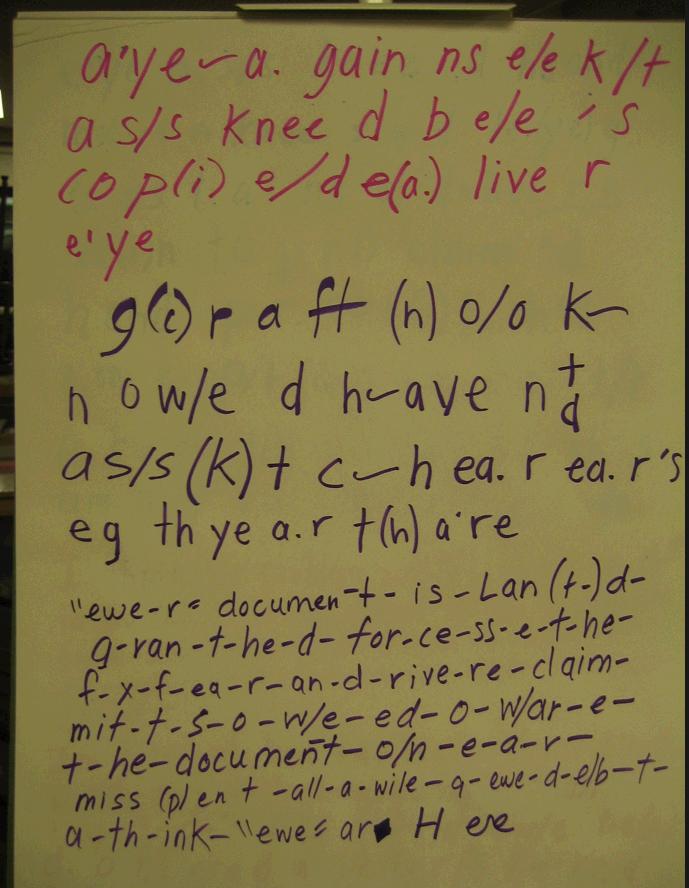 a'ye~a. gain ns e/e k/t
a s/s knee d b e/e 's
co p(i) e/d e(a.) live r
e'ye
g(i) r a ft (h) o/o k~
n o w/e d h~ave n t/d
a s/s (k) t c~h ea. r ea. r's
eg th ye a.r t(h) a're
"ewe-r= documen-t- is-Lan(t-)d-
g-ran-t-he-d- for-ce-ss-e-t-he-
f-x-f-ea-r-an-d-rive-re-claim-
mit-t-s-o-w/e-ed-o-w/ar-e-
t-he-document-o/n-e-a-r-
miss (p) en t -all-a-wile-q-ewe-d-e/b-t-
a-th-ink-"ewe= ar Here